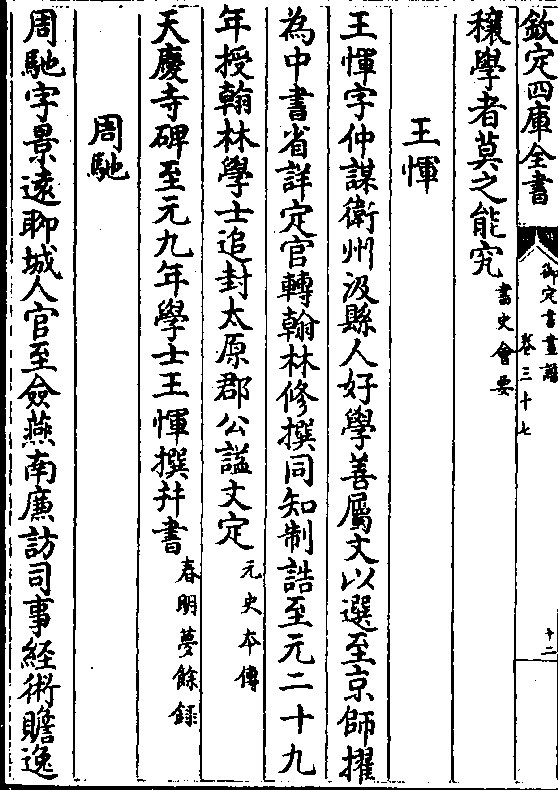 欽定四庫全書
御定書畫譜
卷三十七
十二
穰學者莫之能究書史會要
王惲
王惲字仲謀衛州汲縣人好學善屬文以選至京師擢
為中書省詳定官轉翰林修撰同知制誥至元二十九
年授翰林學士追封太原郡公謚文定元史本傳
天慶寺碑至元九年學士王惲撰幷書春明夢餘録
周馳
周馳字景遠聊城人官至僉燕南廉訪司事經術贍逸